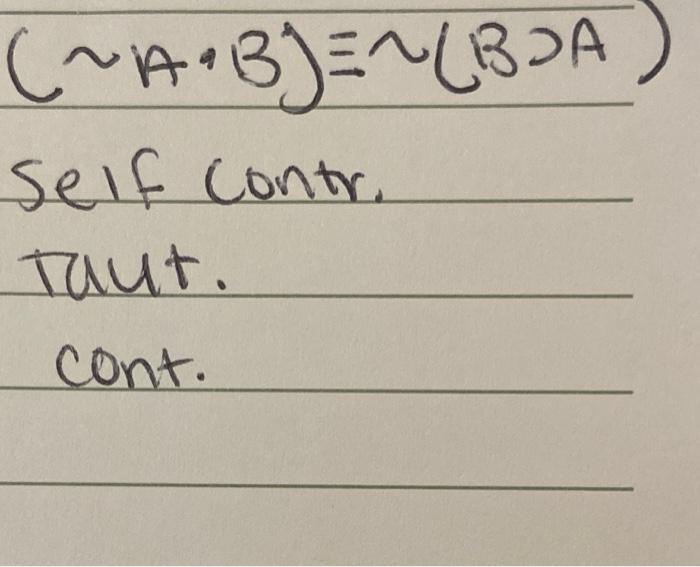 (~A•B)≡~(B⊃A)
Self Contr.
Taut.
cont.